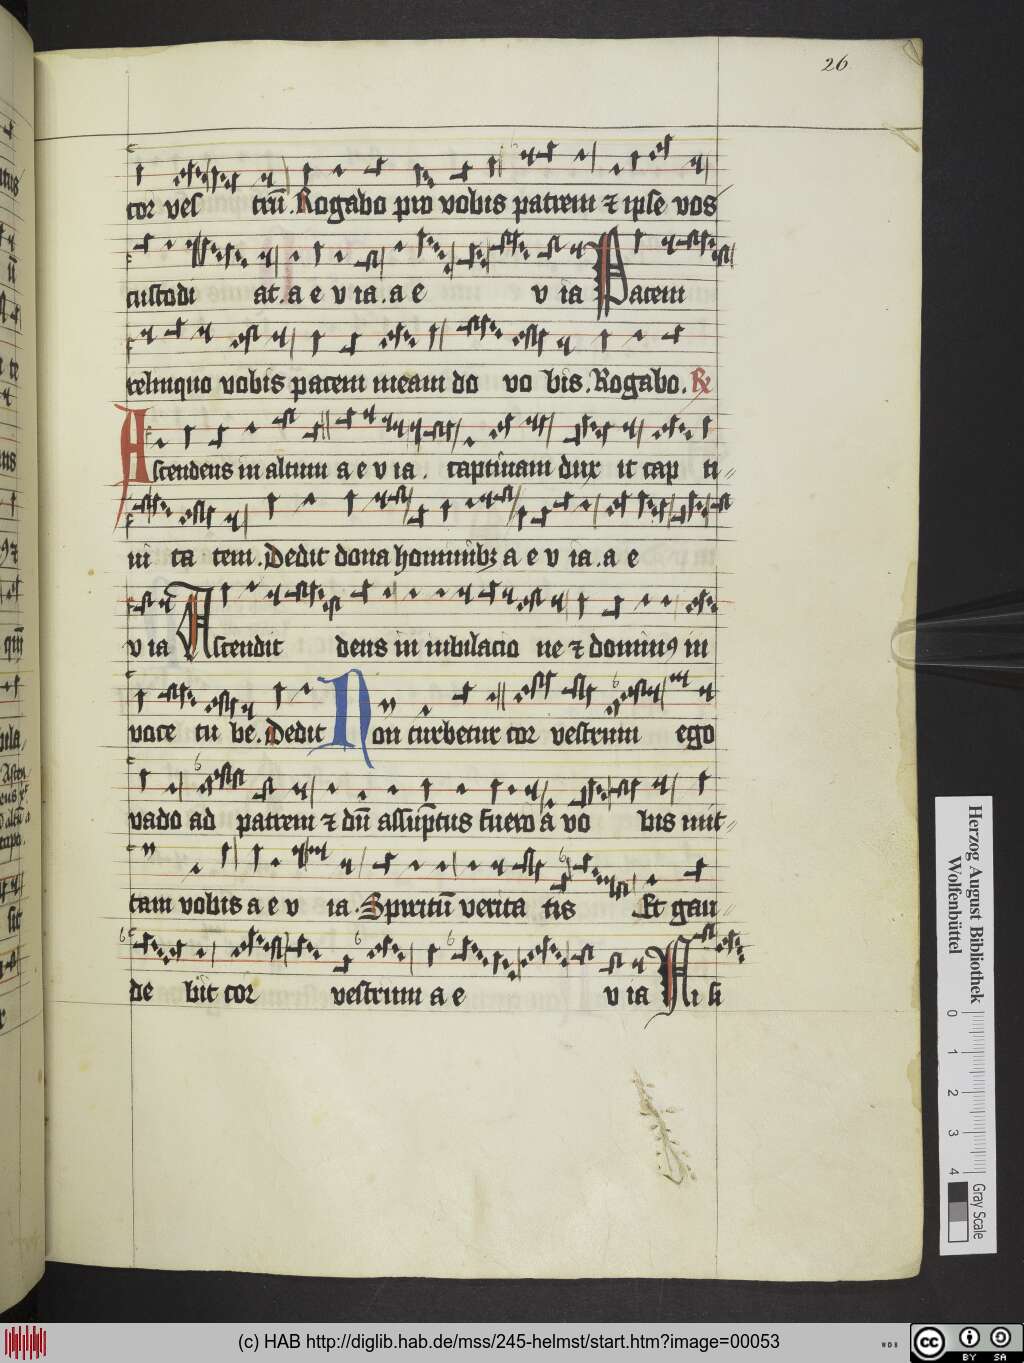 26
cor ves trū. Rogabo pro vobis patrem ⁊ ipse vos
custodi at. a e v ia. a e v ia Patem
relinquo vobis pacem meam do vo bis. Rogabo. ℟
Ascendens in altum a e v ia. captiuam dux it cap ti
ui ta tem. Dedit dona hominibꝫ a e v ia. a e
v ia Ascendit deus in iubilacio ne ⁊ dominꝰ in
voce tu be. Dedit Non turbetur cor vestrum ego
vado ad patrem ⁊ dū assūptus fuero a vo bis mit
tam vobis a e v ia. Spiritū verita tis Et gau
de bit cor vestrum a e v ia Ni si
Herzog August Bibliothek
Wolfenbüttel
0 1 2 3 4
Gray Scale
(c) HAB http://diglib.hab.de/mss/245-helmst/start.htm?image=00053
WDB
cc BY SA